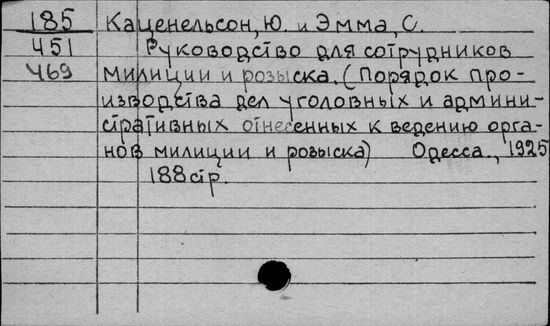 185 Каценельсон, Ю. и Эмма, С.
451 Руководство для сотрудников
469 милиции и розыска. (Порядок про-
изводства дел уголовных и админи-
стративных отнесенных к ведению орга-
нов милиции и розыска) Одесса., 1925
188 стр.